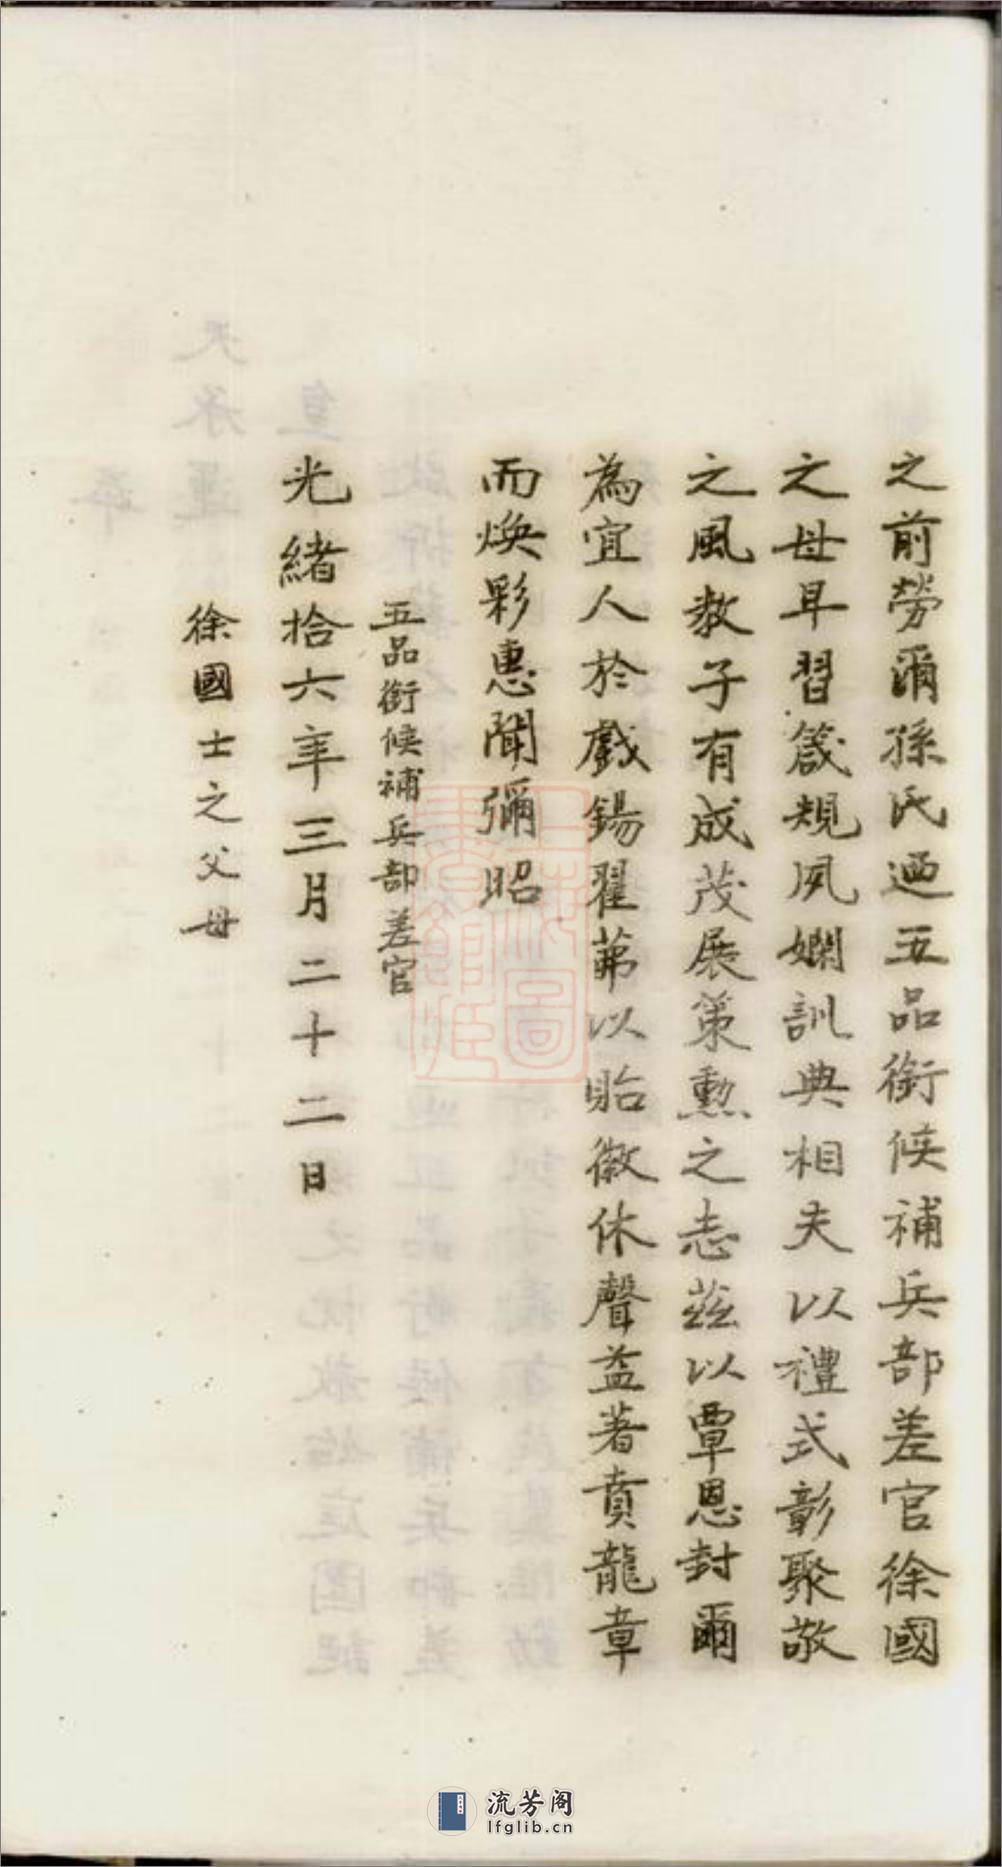 之前勞爾孫氏廼五品銜候補兵部差官徐國
之母早習箴規夙嫻訓典相夫以禮式彰聚敬
之風教子有成茂展策勲之志茲以覃恩封爾
為宜人於戲錫翟茀以貽徽休聲益著賁龍章
而煥彩惠聞彌昭
五品銜候補兵部差官
光緒拾六年三月二十二日
徐國士之父母
流芳阁
lfglib.cn